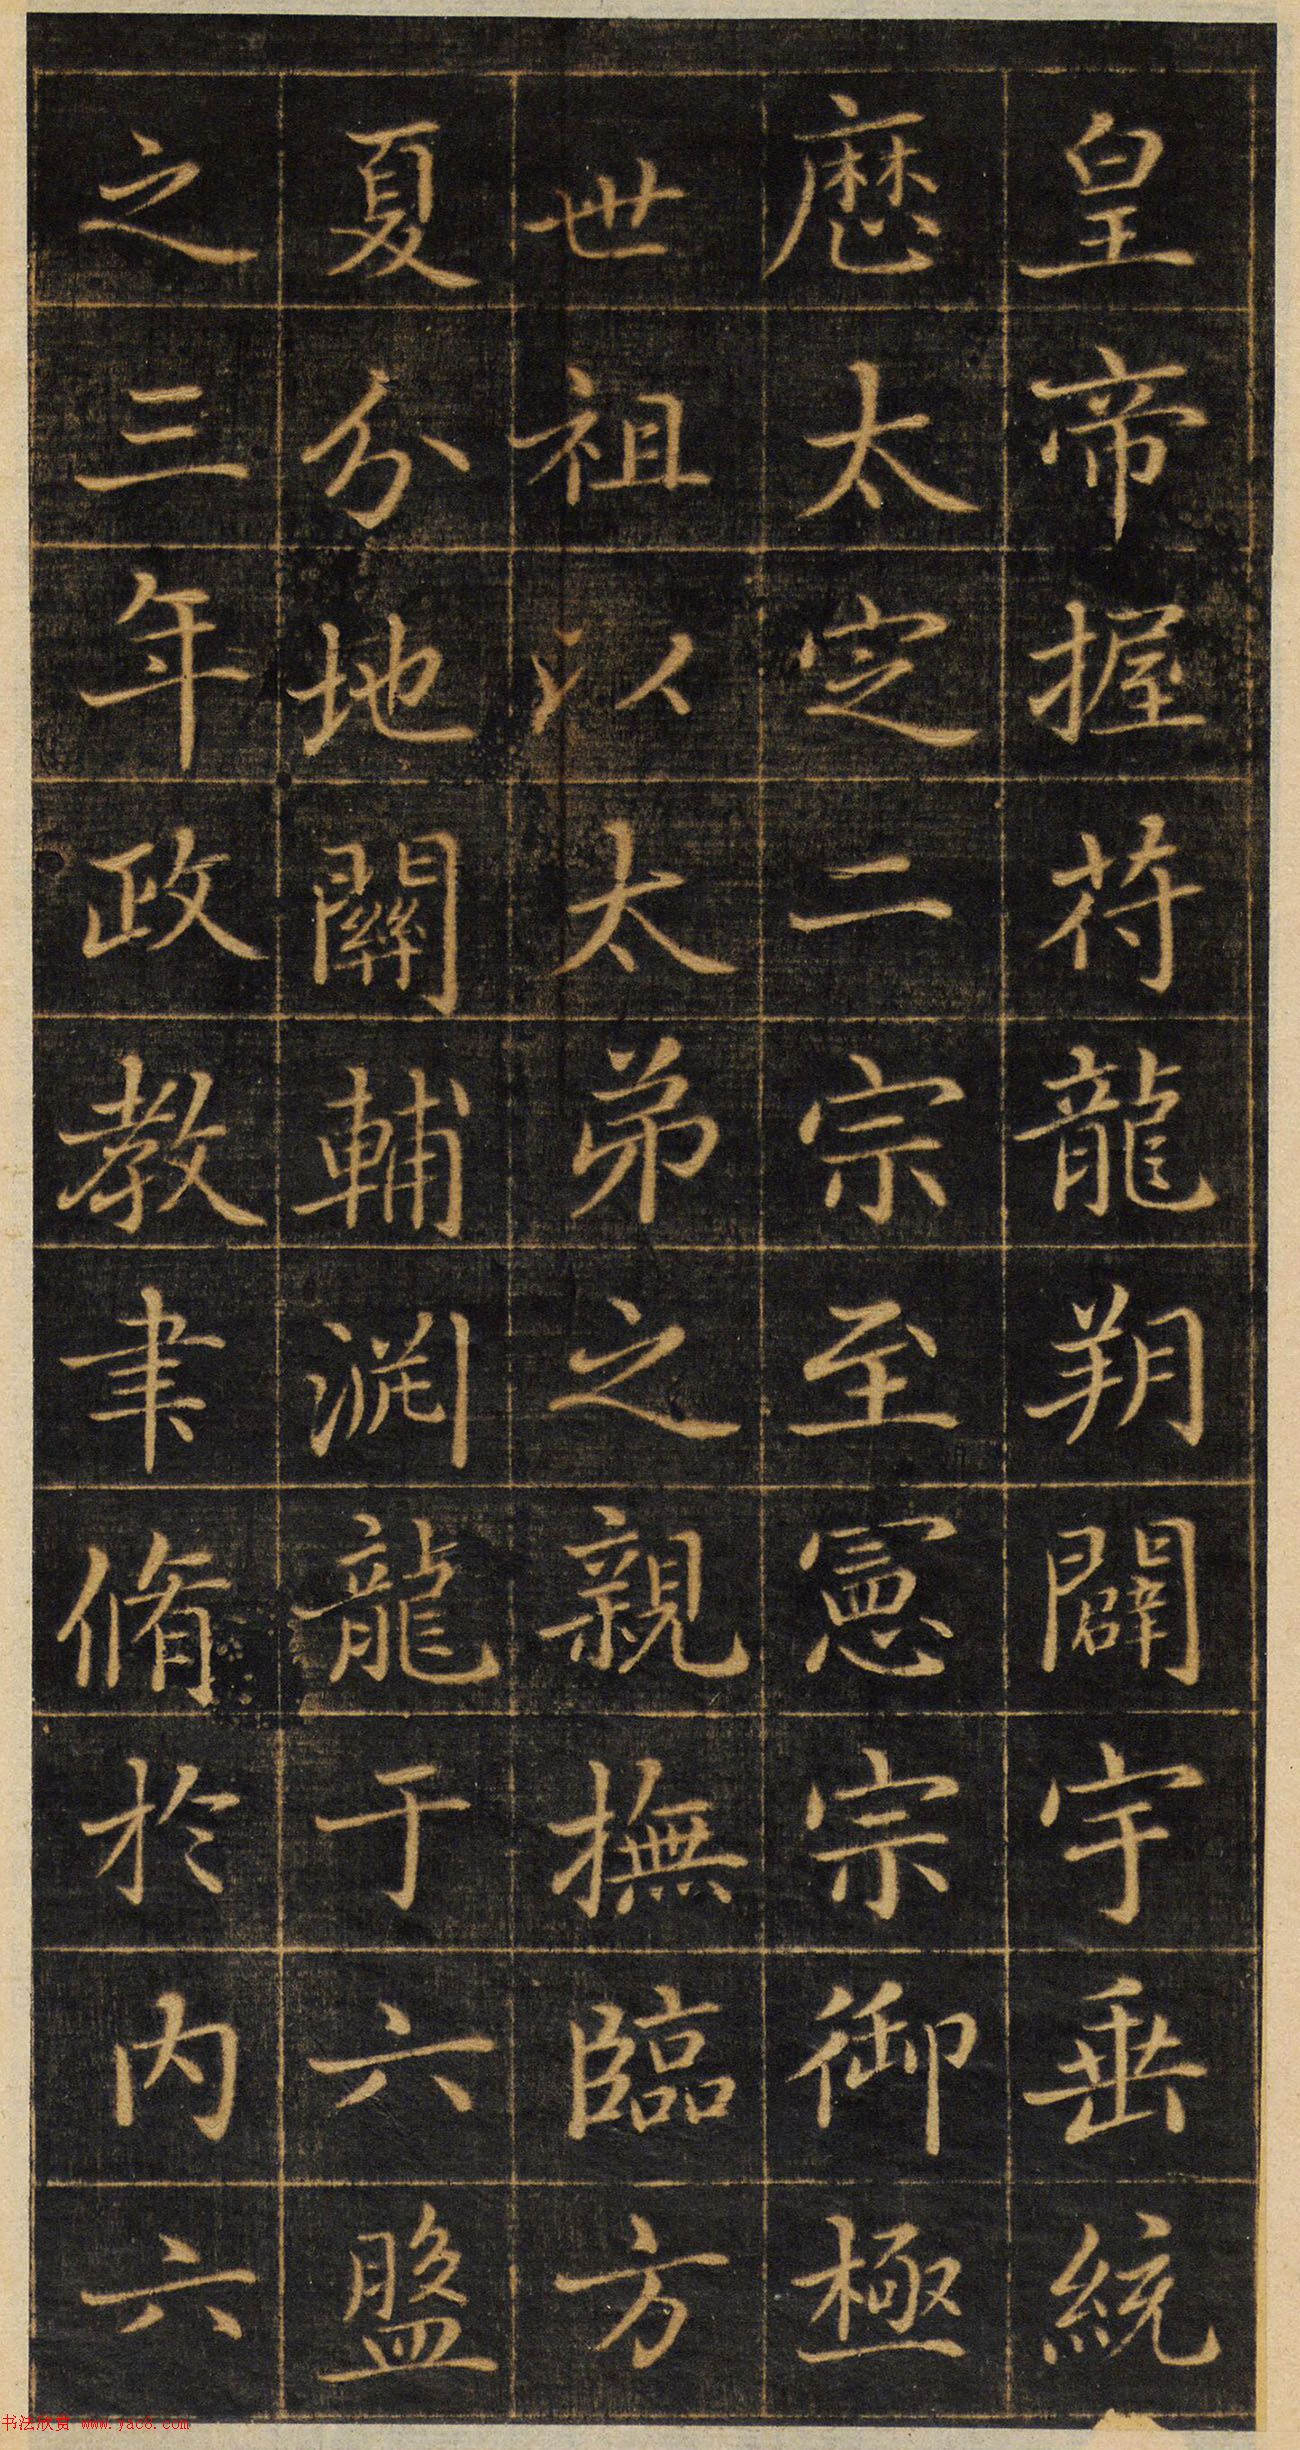 皇帝握符龍朔闢宇垂統
歷太定二宗至憲宗御極
世祖以太弟之親撫臨方
夏分地關輔淵龍于六盤
之三年政教聿脩於内六
书法欣赏 www.yac8.com